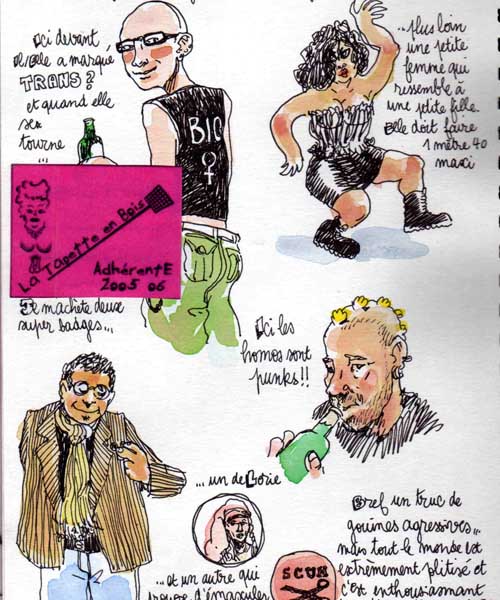 Ici devant
Il/Elle a marqué
TRANS?
et quand elle
se
tourne
...
BIO
♀
...Plus loin
une petite
femme qui
ressemble à
une petite fille.
Elle doit faire
1 mètre 40
maxi
La Tapette en Bois
AdhérentE
2005 06
Je m'achète deux
super badges...
Ici les
homos sont
punks!!
...un de Lorie
...et un autre qui
propose d'émasculer
SCUM
Bref un truc de
gouines agressives...
mais tout le monde est
extrêmement plitisé et
c'est enthousiasmant